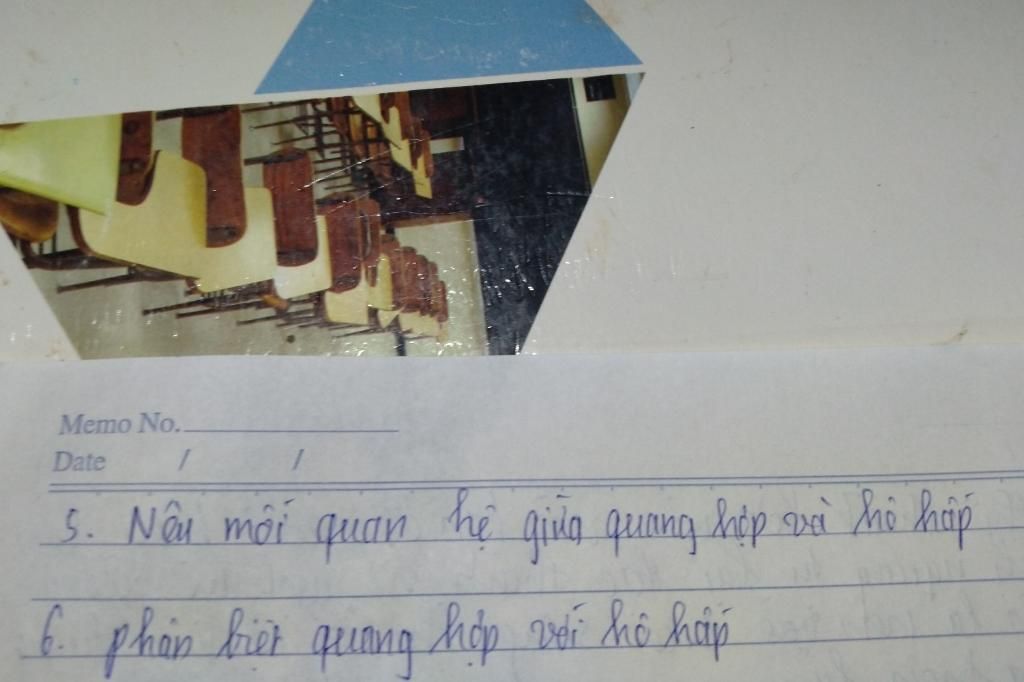 Memo No.
Date / /
5. Nêu mối quan hệ giữa quang hợp và hô hấp
6. phân biệt quang hợp với hô hấp